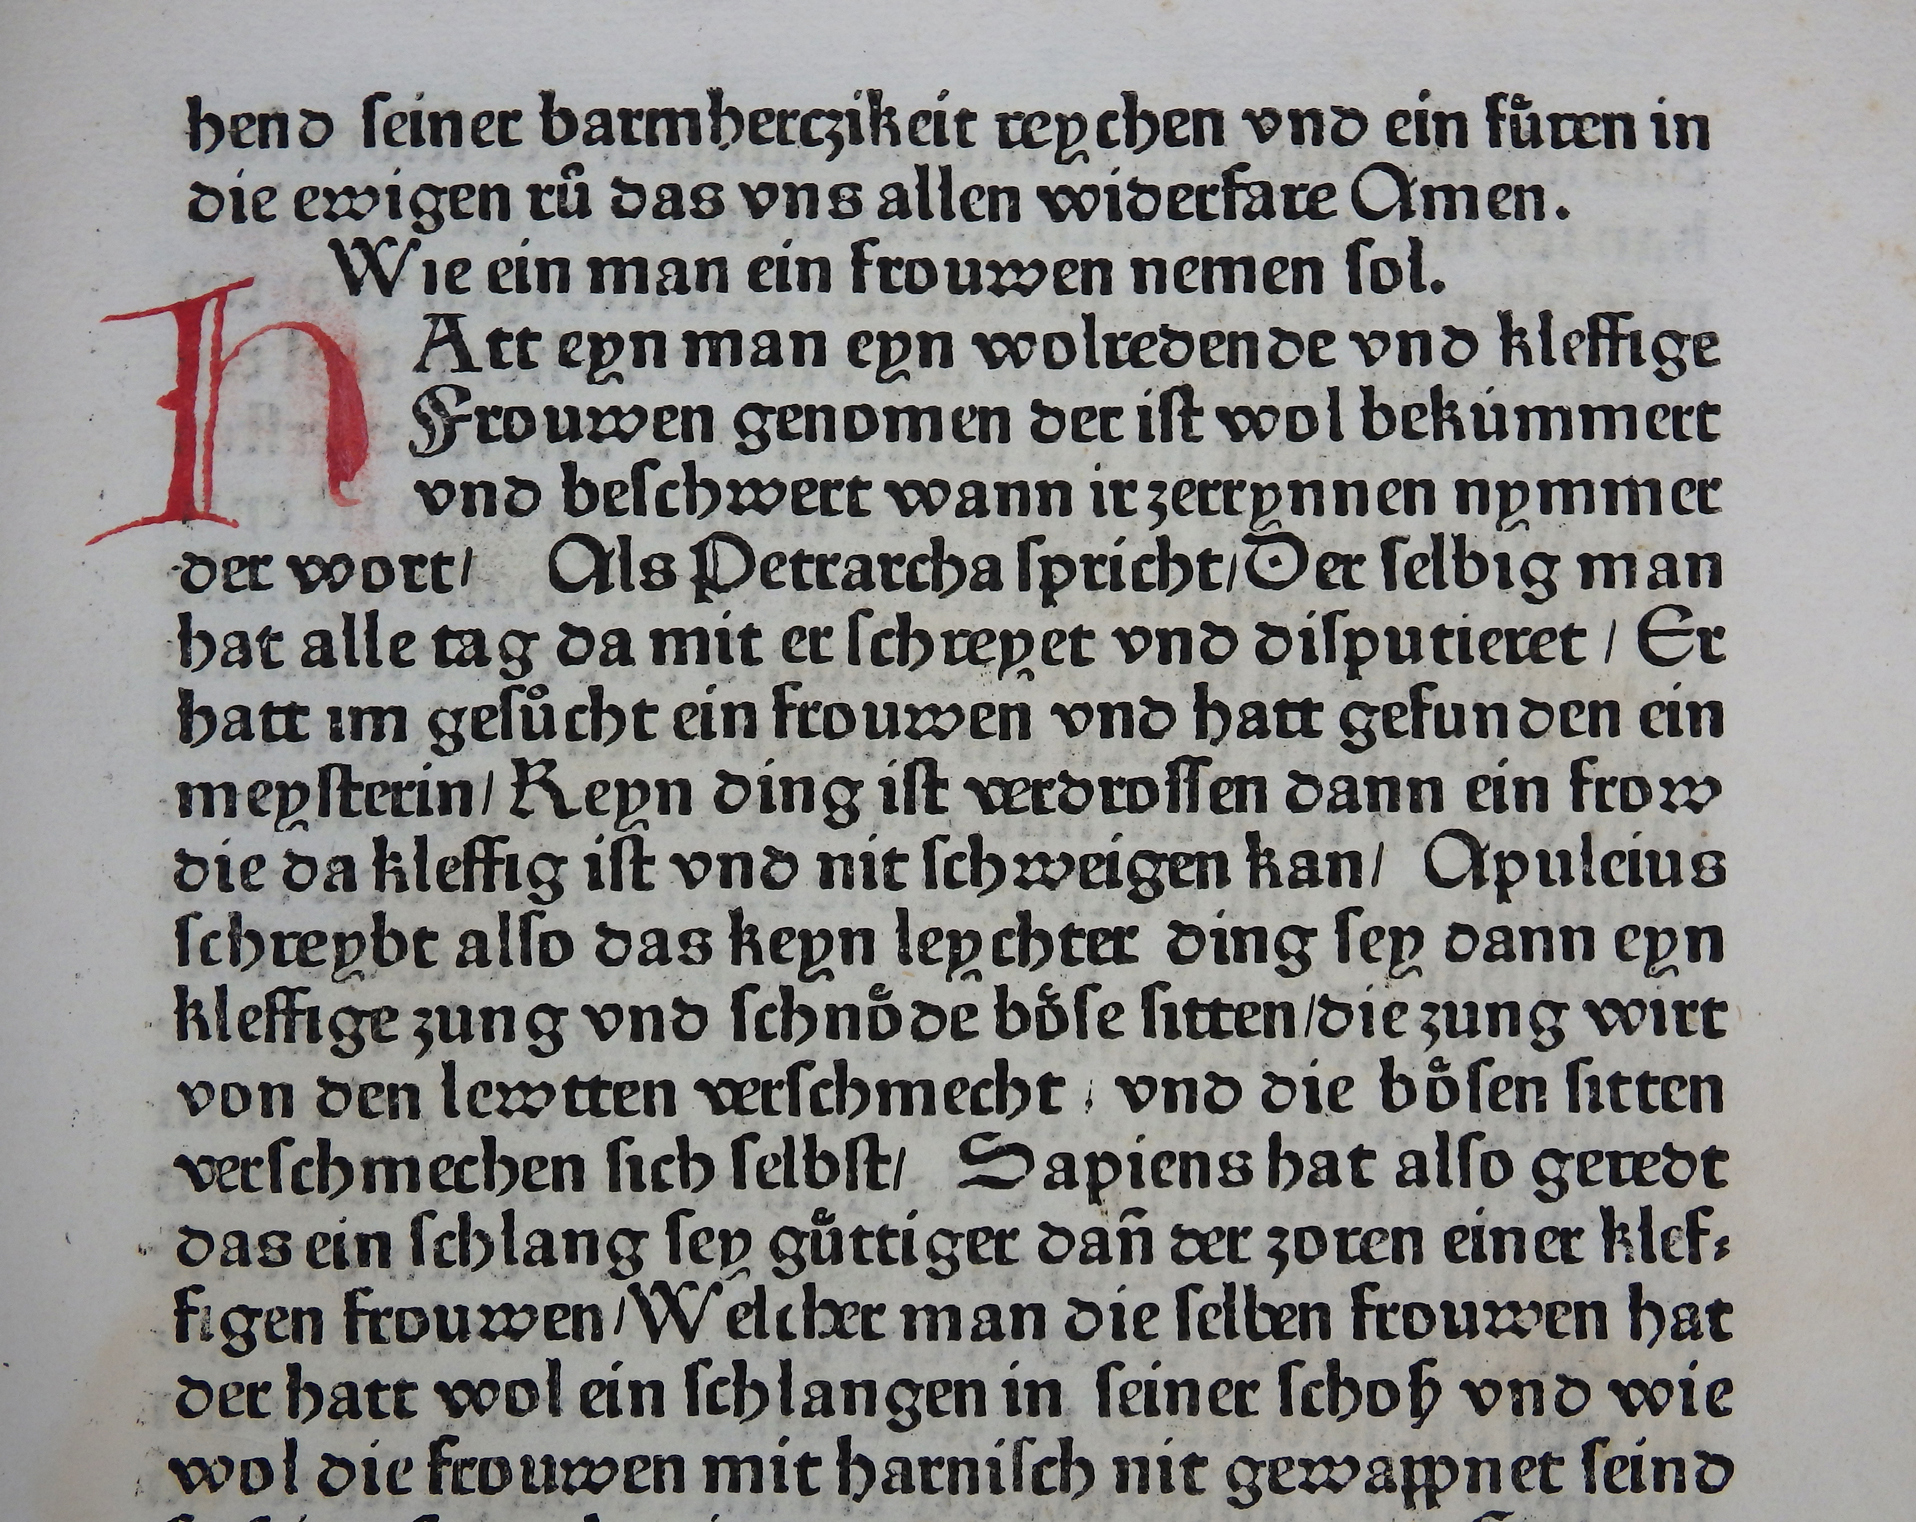 hend ſeiner barmherczikeit reychen vnd ein fuͤren in
die ewigen ruͦ das vns allen widerfare Amen.
Wie ein man ein frouwen nemen ſol.
HAtt eyn man eyn wolredende vnd kleffige
Frouwen genomen der iſt wol bekúmmert
vnd beſchwert wann ir zerrynnen nymmer
der wort/ Als Petrarcha ſpricht/Der ſelbig man
hat alle tag da mit er ſchreyet vnd diſputieret / Er
hatt im geſuͦcht ein frouwen vnd hatt gefunden ein
meyſterin/ Keyn ding iſt verdroſſen dann ein frow
die da kleffig iſt vnd nit ſchweigen kan/ Apuleius
ſchreybt alſo das keyn leychter ding ſey dann eyn
kleffige zung vnd ſchnoͤde boͤſe ſitten/die zung wirt
von den lewtten verſchmecht / vnd die boͤſen ſitten
verſchmechen ſich ſelbſt/ Sapiens hat alſo geredt
das ein ſchlang ſey guͤttiger dañ der zoren einer klef⸗
figen frouwen/Welcher man die ſelben frouwen hat
der hatt wol ein ſchlangen in ſeiner ſchoß vnd wie
wol die frouwen mit harniſch nit gewappnet ſeind